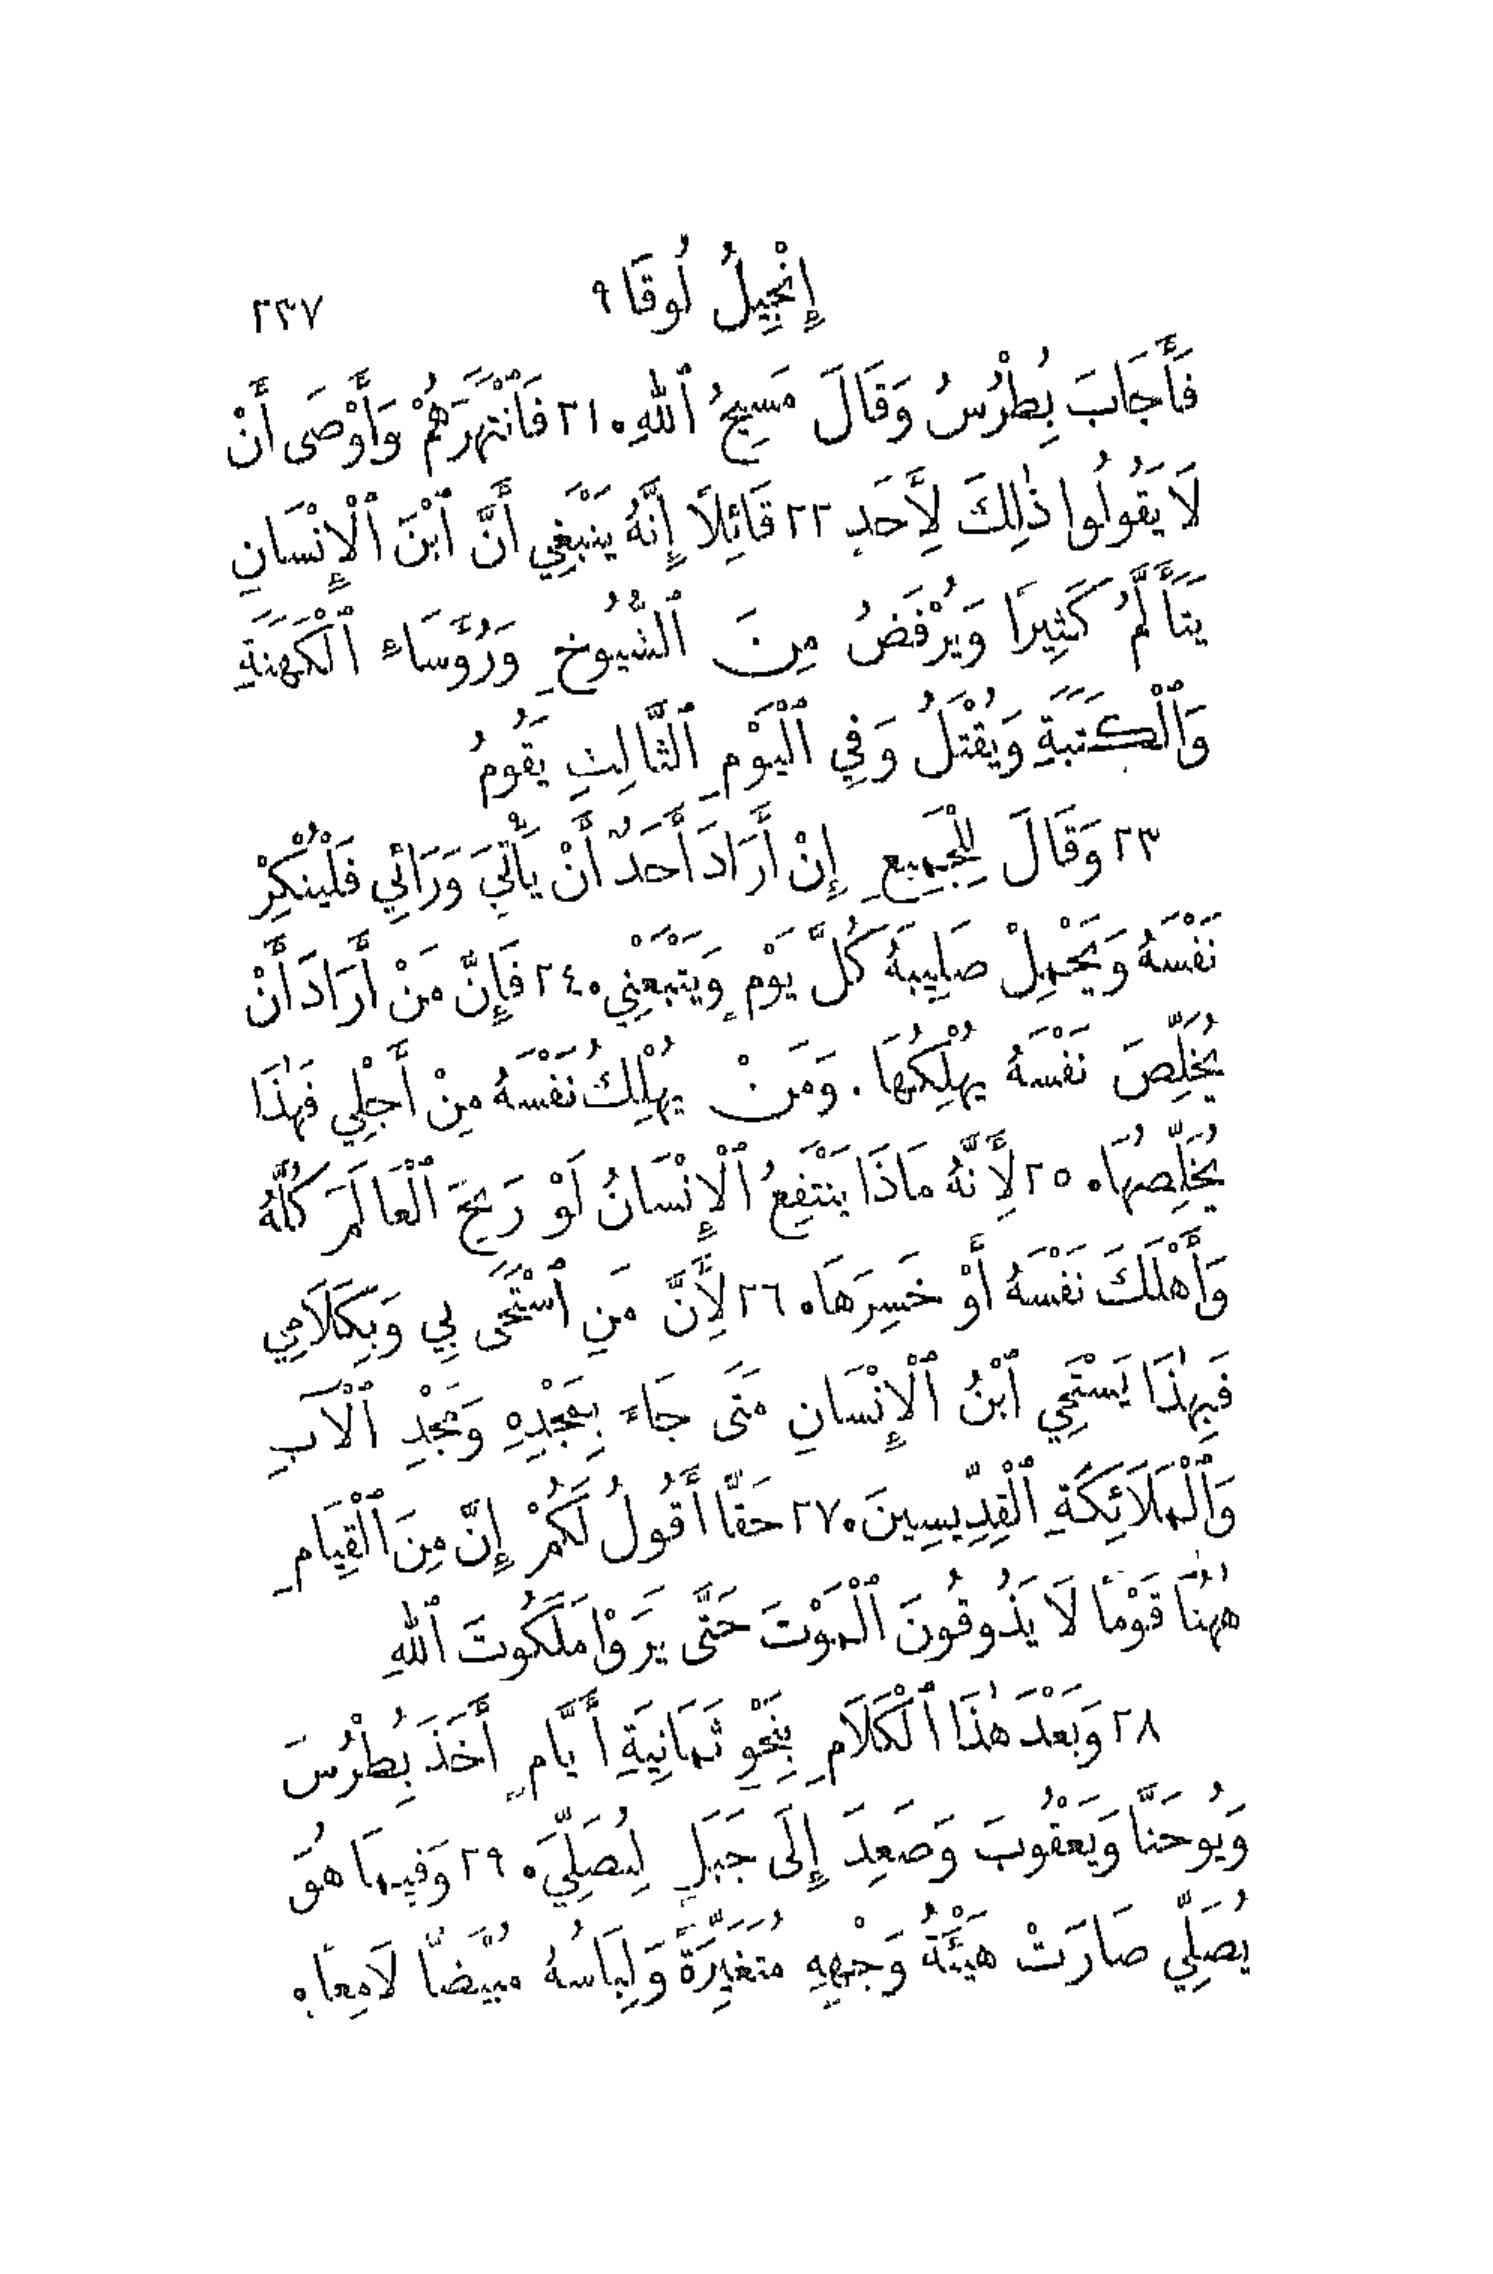 إِنْجِيلُ لُوقَا ٩ ٢٣٧
فَأَجَابَ بُطْرُسُ وَقَالَ مَسِيحُ ٱللهِ. ٢١ فَٱنْتَهَرَهُمْ وَأَوْصَى أَنْ
لَا يَقُولُوا ذٰلِكَ لِأَحَدٍ ٢٢ قَائِلًا إِنَّهُ يَنْبَغِي أَنَّ ٱبْنَ ٱلْإِنْسَانِ
يَتَأَلَّمُ كَثِيرًا وَيُرْفَضُ مِنَ ٱلشُّيُوخِ وَرُؤَسَاءِ ٱلْكَهَنَةِ
وَٱلْكَتَبَةِ وَيُقْتَلُ وَفِي ٱلْيَوْمِ ٱلثَّالِثِ يَقُومُ
٢٣ وَقَالَ لِلْجَمِيعِ إِنْ أَرَادَ أَحَدٌ أَنْ يَأْتِيَ وَرَائِي فَلْيُنْكِرْ
نَفْسَهُ وَيَحْمِلْ صَلِيبَهُ كُلَّ يَوْمٍ وَيَتْبَعْنِي. ٢٤ فَإِنَّ مَنْ أَرَادَ أَنْ
يُخَلِّصَ نَفْسَهُ يُهْلِكُهَا. وَمَنْ يُهْلِكُ نَفْسَهُ مِنْ أَجْلِي فَهٰذَا
يُخَلِّصُهَا. ٢٥ لِأَنَّهُ مَاذَا يَنْتَفِعُ ٱلْإِنْسَانُ لَوْ رَبِحَ ٱلْعَالَمَ كُلَّهُ
وَأَهْلَكَ نَفْسَهُ أَوْ خَسِرَهَا. ٢٦ لِأَنَّ مَنِ ٱسْتَحَى بِي وَبِكَلَامِي
فَبِهٰذَا يَسْتَحِي ٱبْنُ ٱلْإِنْسَانِ مَتَى جَاءَ بِمَجْدِهِ وَمَجْدِ ٱلْآبِ
وَٱلْمَلَائِكَةِ ٱلْقِدِّيسِينَ. ٢٧ حَقًّا أَقُولُ لَكُمْ إِنَّ مِنَ ٱلْقِيَامِ
هٰهُنَا قَوْمًا لَا يَذُوقُونَ ٱلْمَوْتَ حَتَّى يَرَوْا مَلَكُوتَ ٱللهِ
٢٨ وَبَعْدَ هٰذَا ٱلْكَلَامِ بِنَحْوِ ثَمَانِيَةِ أَيَّامٍ أَخَذَ بُطْرُسَ
وَيُوحَنَّا وَيَعْقُوبَ وَصَعِدَ إِلَى جَبَلٍ لِيُصَلِّيَ. ٢٩ وَفِيمَا هُوَ
يُصَلِّي صَارَتْ هَيْئَةُ وَجْهِهِ مُتَغَيِّرَةً وَلِبَاسُهُ مُبْيَضًّا لَامِعًا.